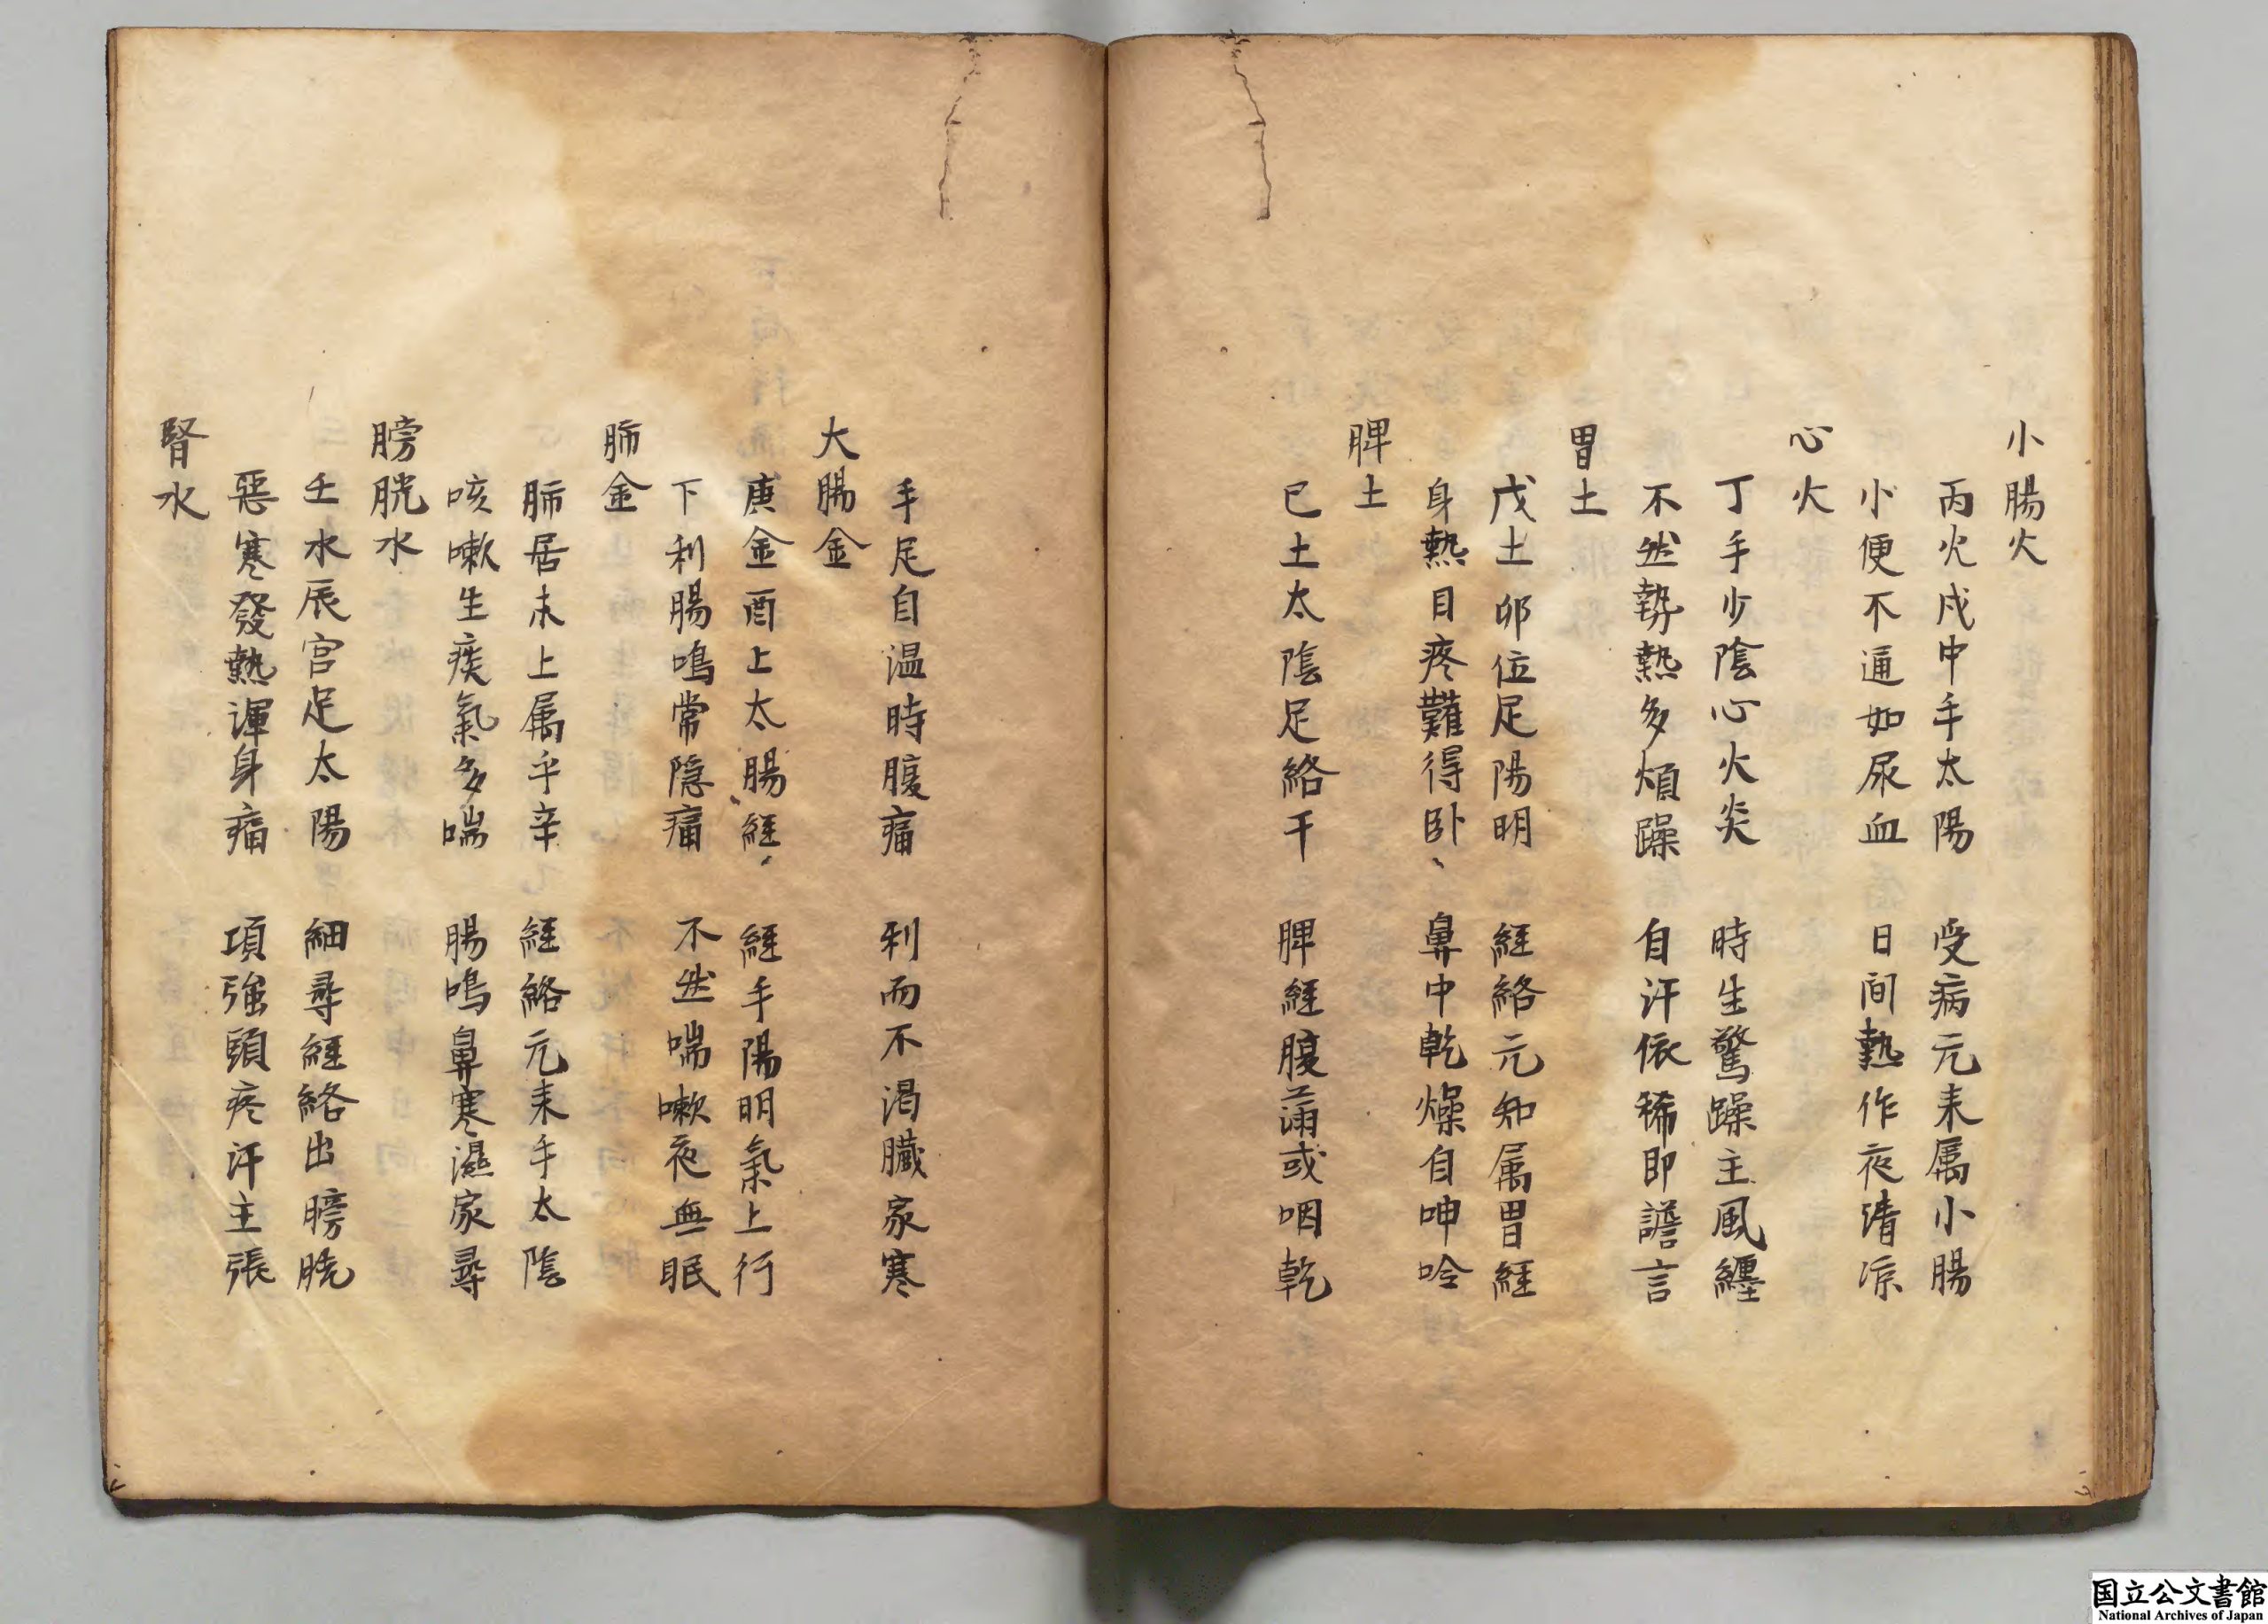 小腸火
丙火戍中手太陽　受病元来属小腸
小便不通如尿血　日间熱作夜清凉
心火
丁手少陰心火炎　時生驚躁主風纏
不然勢熱多煩躁　自汗依稀即譫言
胃土
戊土卯位足陽明　經絡元知属胃經
身熱目疼難得卧　鼻中乾燥自呻吟
脾土
已土太陰足絡干　脾經腹滿或咽乾
手足自温時腹痛　利而不渇臟家寒
大腸金
庚金酉上太腸經　經手陽明氣上行
下利腸鳴常隐痛　不然喘嗽夜無眠
肺金
肺居未上属乎辛　經絡元来手太陰
咳嗽生痰氣多喘　腸鳴鼻寒濕家尋
膀胱水
壬水辰宮足太陽　細尋經絡出膀胱
惡寒發熱渾身痛　項強頭疼汗主張
腎水
国立公文書館
National Archives of Japan